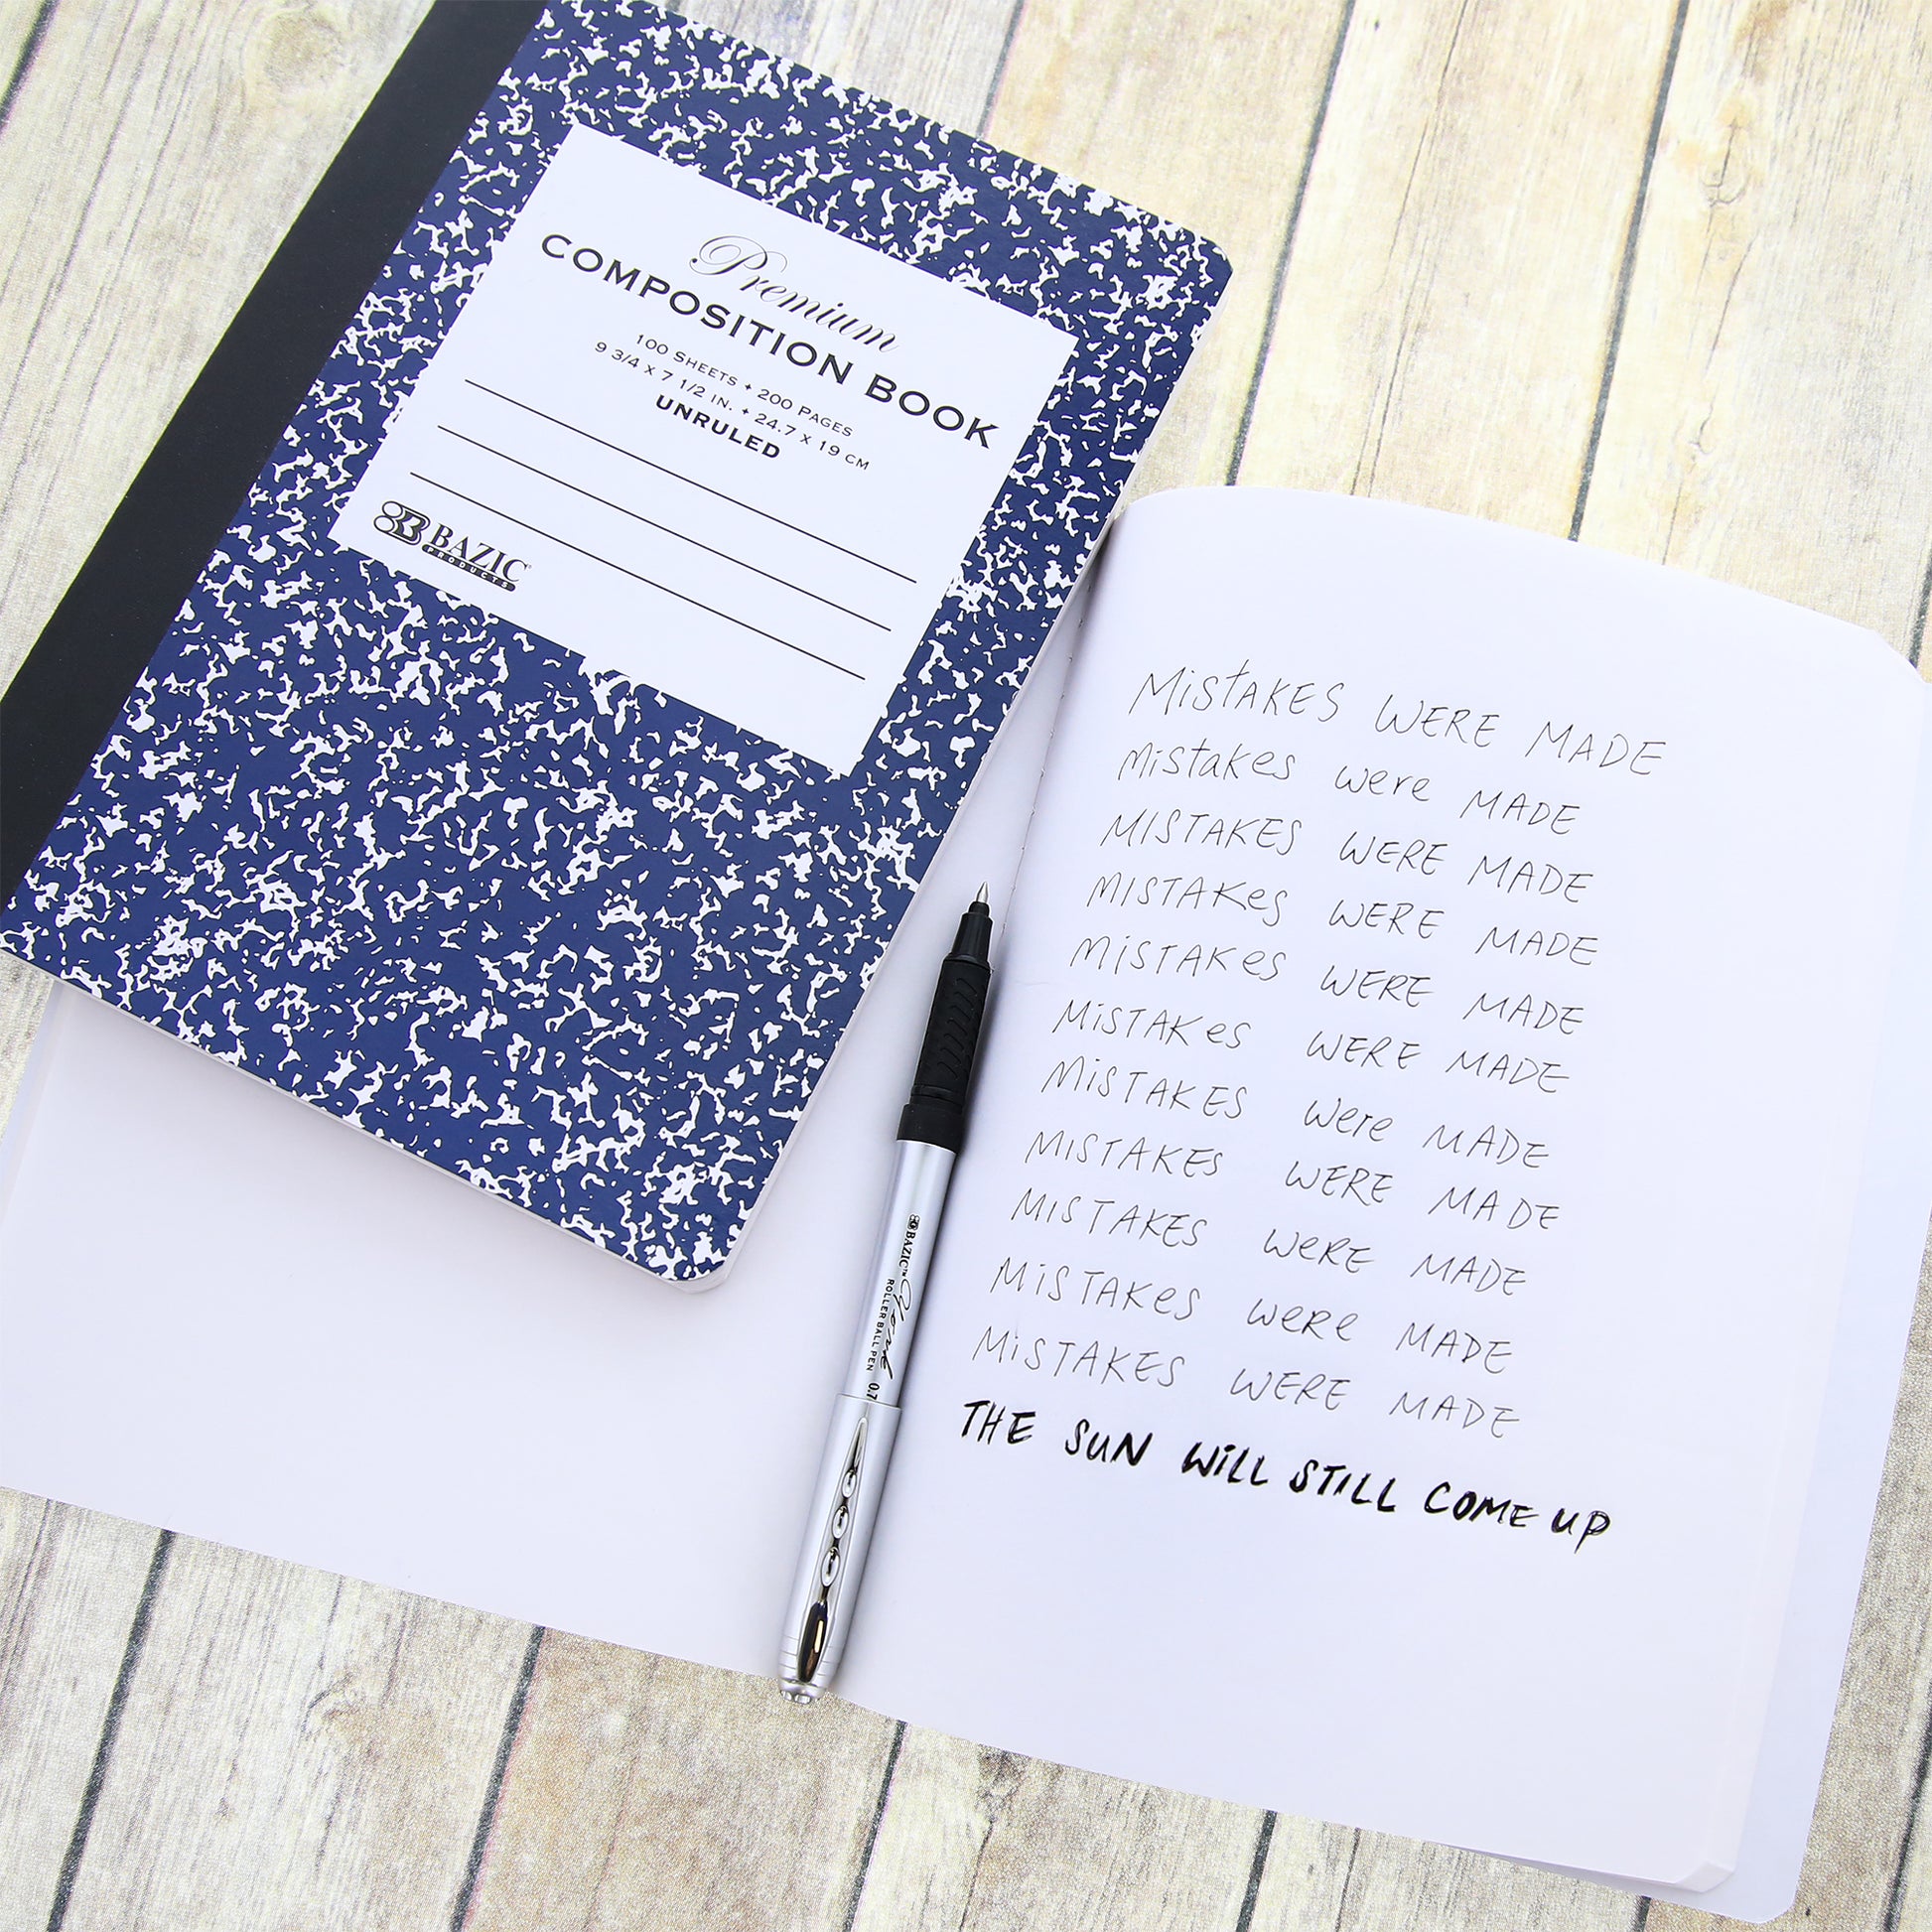 Premium
COMPOSITION BOOK
100 SHEETS • 200 PAGES
9 3/4 X 7 1/2 IN. • 24.7 X 19 CM
UNRULED
BAZIC
PRODUCTS
MiStAKES WERE MADE
Mistakes were MADE
MISTAKES WERE MADE
MISTAKes WERE MADE
MiSTAKes WERE MADE
MiSTAKes WERE MADE
MiSTAKES Were MADE
MISTAKES WERE MADE
MiSTAKES WeRE MADE
MiSTAKes weRe MADE
MiSTAKES WERE MADE
THE SUN WiLL STILL COME UP
BAZIC™
ROLLER BALL PEN 0.7